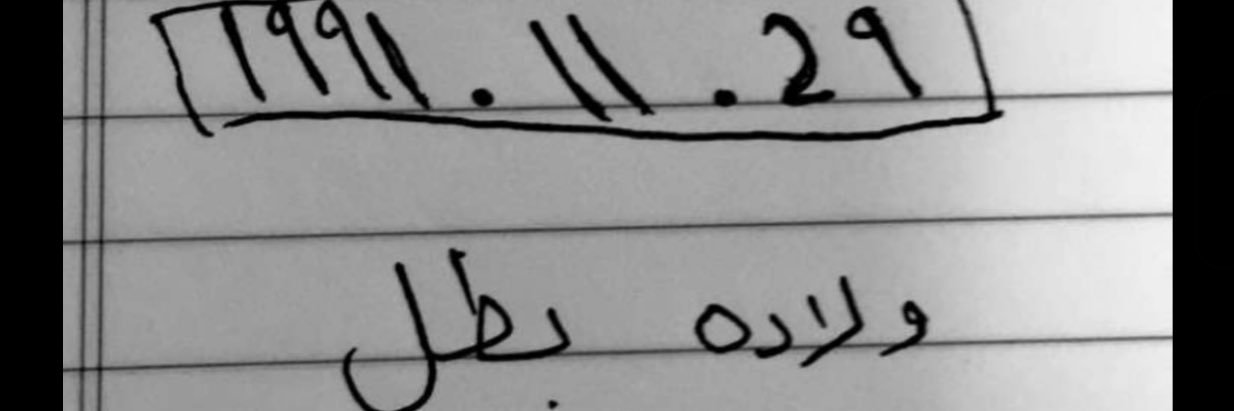 ١٩٩١.١١.2٩
ولاده بطل